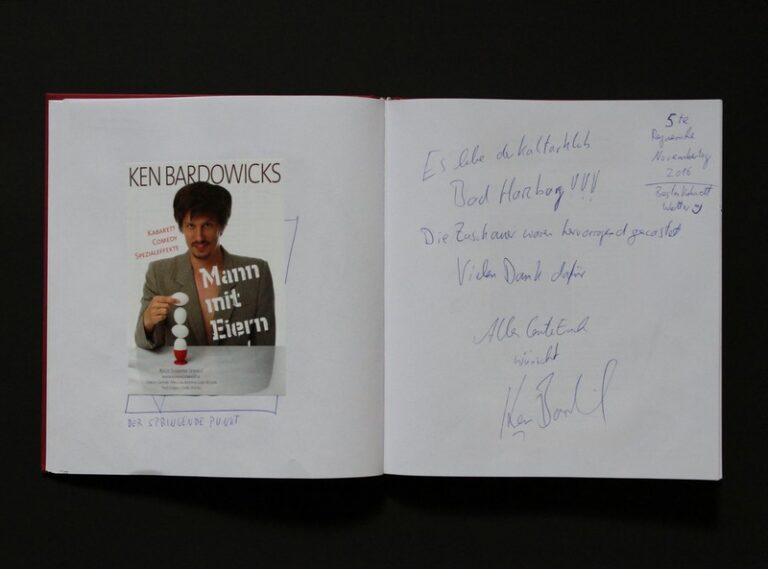 KEN BARDOWICKS
KABARETT
COMEDY
SPEZIALEFFEKTE
Mann
mit
Eiern
DER SPRINGENDE PUNKT
Es lebe der Kulturklub
Bad Harzburg!!!
Die Zuschauer waren hervorragend gecastet
Vielen Dank dafür
Alles Gute Euch
wünscht
Ken Bardowicks
5te
Regnerische
Novembertag
2016
Wetter